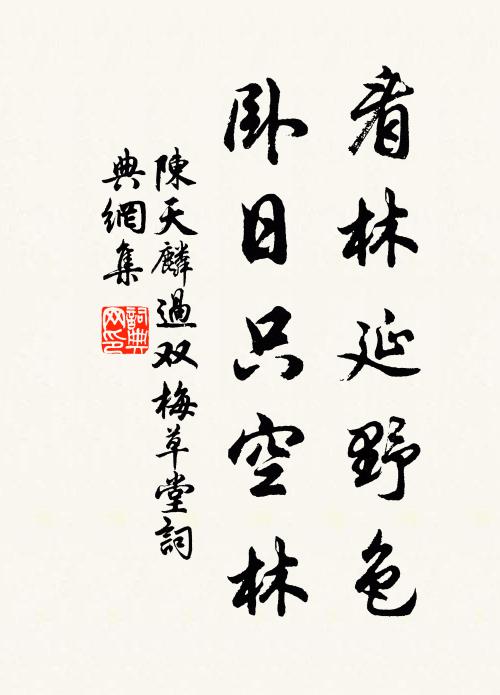 看林延野色
臥日只空林
陳天麟過双梅草堂詞
典網集
詞典網印